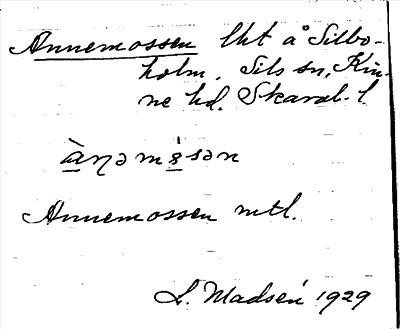 Annemossen lht å Silbo-
holm, Sils sn, Kin-
ne hd. Skarab. l.
Annemossen mtl.
L. Madsén 1929